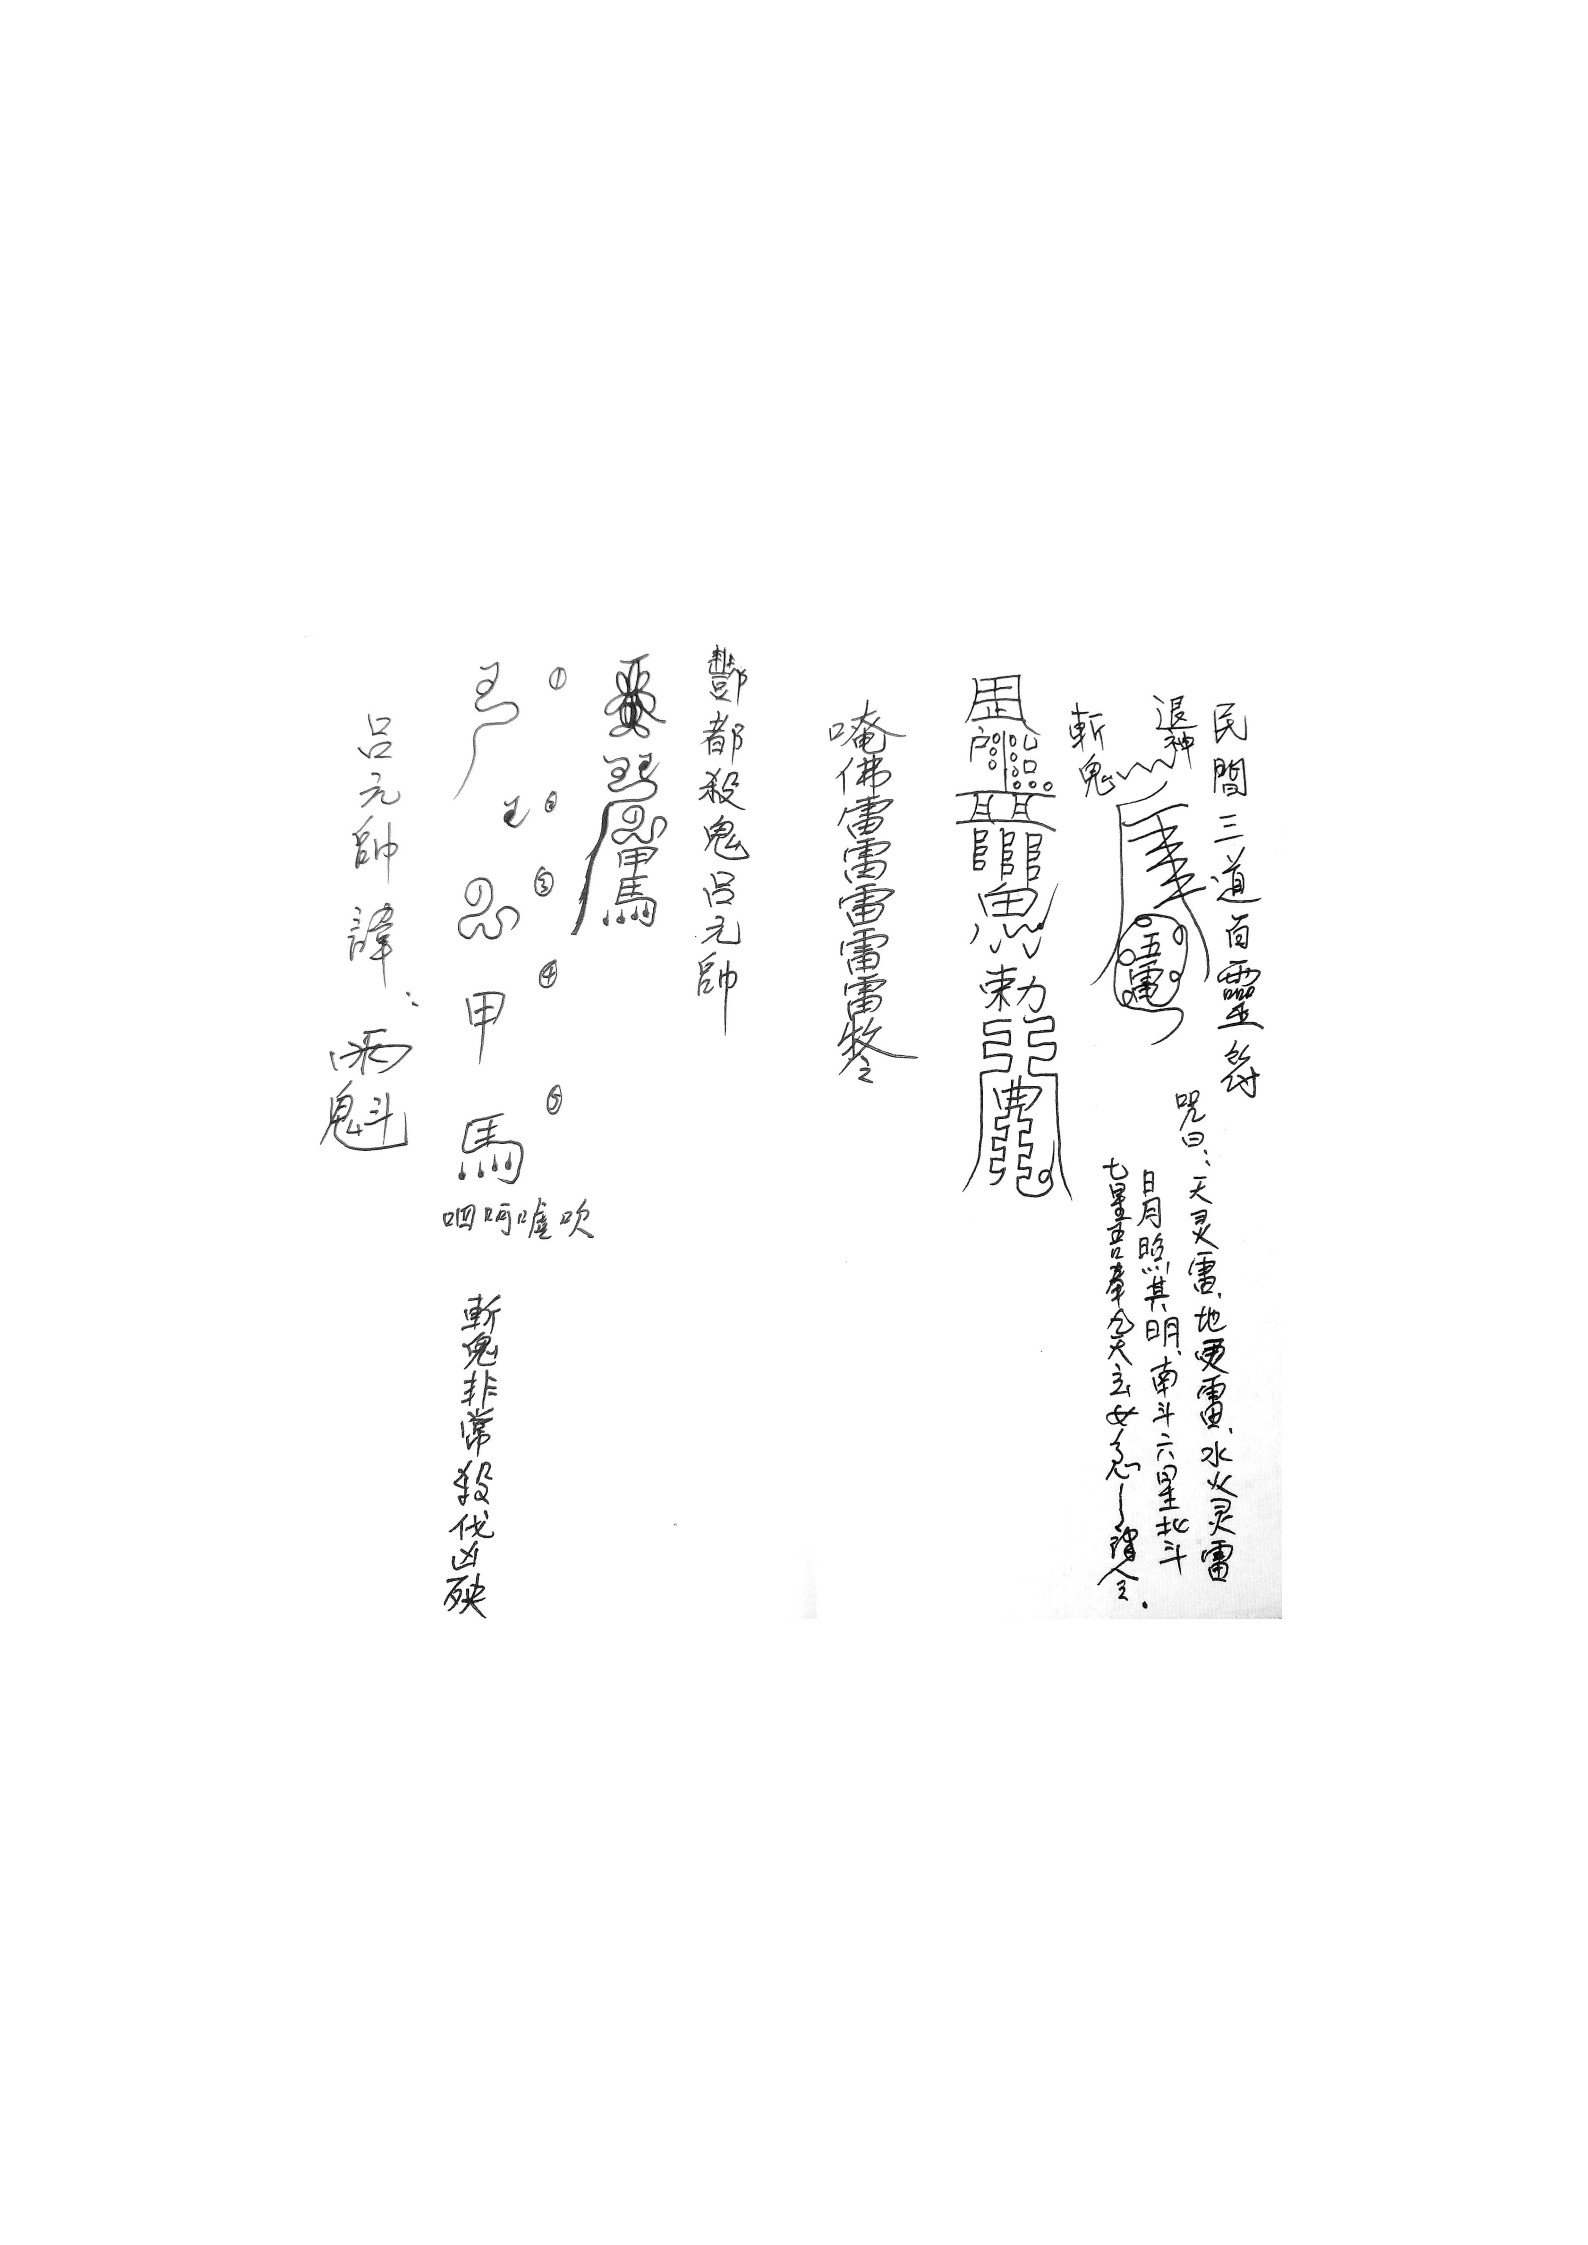 民間三道百靈符
退神
斬鬼
五雷
咒曰：天灵雷、地灵雷、水火灵雷
日月照其明、南斗六星北斗
七星吾奉九天玄女急
令。
勅
唵佛雷雷雷雷雷
酆都殺鬼呂元帥
①
②
③
④甲
⑤馬
呬呵嘘吹
斬鬼非常殺伐凶殃
呂元帥諱：
魁